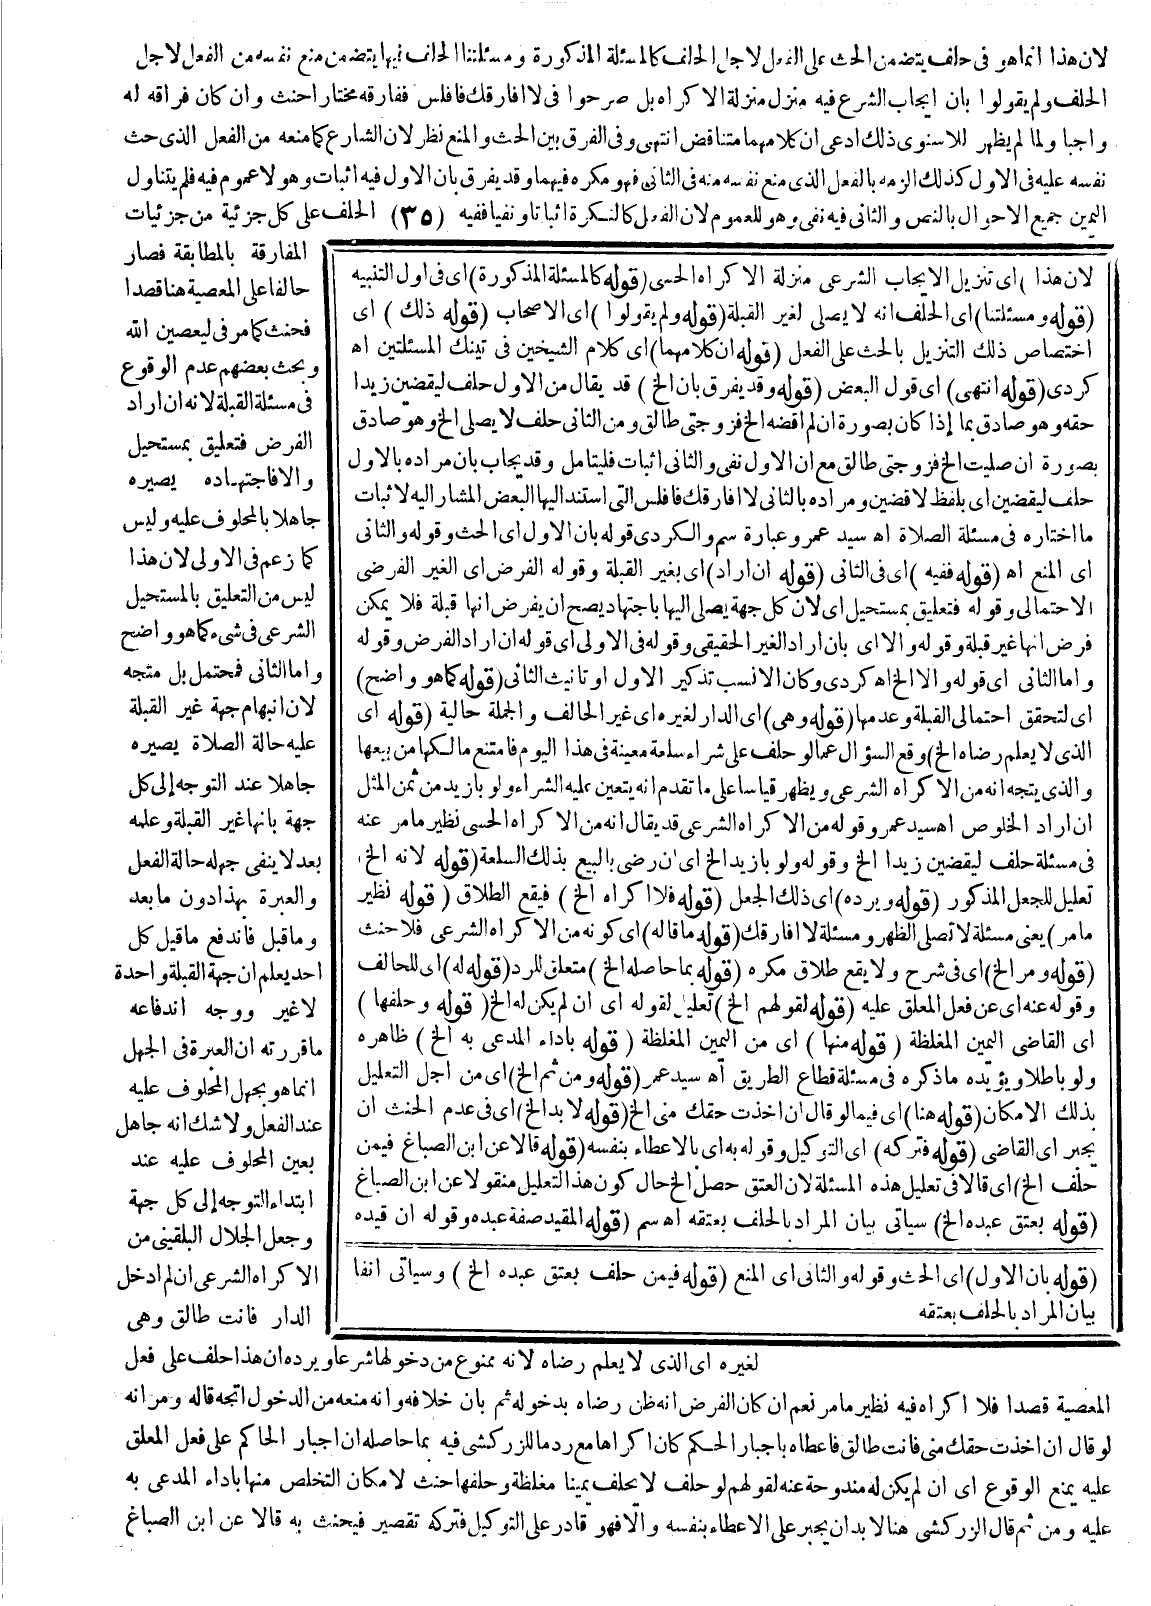 لان هذا انما هو فى حلف يتضمن الحث على الفعل لاجل الحلف كالمسئلة المذكورة ومسئلتنا الحلف فيها يتضمن منع نفسه من الفعل لاجل
الحلف ولم يقولوا بان ايجاب الشرع فيه منزل منزلة الاكراه بل صرحوا فى لا افارقك فافلس ففارقه مختار احنث وان كان فراقه له
واجبا ولما لم يظهر للاسنوى ذلك ادعى ان كلامهما متناقض انتهى وفى الفرق بين الحث والمنع نظر لان الشارع كما منعه من الفعل الذى حث
نفسه عليه فى الاول كذلك الزمه بالفعل الذى منع نفسه منه فى الثانى فهو مكره فيهما وقد يفرق بان الاول فيه اثبات وهو لا عموم فيه فلم يتناول
اليمين جميع الاحوال بالنص والثانى فيه نفى وهو للعموم لان الفعل كالنكرة اثباتا ونفيا ففيه (٣٥) الحلف على كل جزئية من جزئيات
المفارقة بالمطابقة فصار
حالفا على المعصية هنا قصدا
فحنث كما مر فى ليعصين الله
وبحث بعضهم عدم الوقوع
فى مسئلة القبلة لانه ان اراد
الفرض فتعليق بمستحيل
والا فاجتهاده يصيره
جاهلا بالمحلوف عليه وليس
كما زعم فى الاولى لان هذا
ليس من التعليق بالمستحيل
الشرعى فى شىء كما هو واضح
واما الثانى فمحتمل بل متجه
لان ابهام جهة غير القبلة
عليه حالة الصلاة يصيره
جاهلا عند التوجه إلى كل
جهة بانها غير القبلة وعلمه
بعد لا ينفى جهله حالة الفعل
والعبرة بهذا دون ما بعد
وما قبل فاندفع ما قيل كل
احد يعلم ان جهة القبلة واحدة
لا غير ووجه اندفاعه
ما قررته ان العبرة فى الجهل
انما هو بجهل المحلوف عليه
عند الفعل ولا شك انه جاهل
بعين المحلوف عليه عند
ابتداء التوجه إلى كل جهة
وجعل الجلال البلقينى من
الاكراه الشرعى ان لم ادخل
الدار فانت طالق وهى
لغيره اى الذى لا يعلم رضاه لانه ممنوع من دخولها شرعا ويرده ان هذا حلف على فعل
المعصية قصدا فلا اكراه فيه نظير ما مر نعم ان كان الفرض انه ظن رضاه بدخوله ثم بان خلافه وانه منعه من الدخول اتجه ما قاله ومر انه
لو قال ان اخذت حقك منى فانت طالق فاعطاه باجبار الحكم كان اكراها مع رد ما للزركشى فيه بما حاصله ان اجبار الحاكم على فعل المعلق
عليه يمنع الوقوع اى ان لم يكن له مندوحة عنه لقولهم لو حلف لا يحلف يمينا مغلظة وحلفها حنث لامكان التخلص منها باداء المدعى به
عليه ومن ثم قال الزركشى هنا لا بد ان يجبر على الاعطاء بنفسه والا فهو قادر على التوكيل فتركه تقصير فيحنث به قالا عن ابن الصباغ
لان هذا) اى تنزيل الايجاب الشرعى منزلة الاكراه الحسى (قوله كالمسئلة المذكورة) اى فى اول التنبيه
(قوله ومسئلتنا) اى الحلف انه لا يصلى لغير القبلة (قوله ولم يقولوا) اى الاصحاب (قوله ذلك) اى
اختصاص ذلك التنزيل بالحث على الفعل (قوله ان كلامهما) اى كلام الشيخين فى تينك المسئلتين اه
كردى (قوله انتهى) اى قول البعض (قوله وقد يفرق بان الخ) قد يقال من الاول حلف ليقضين زيدا
حقه وهو صادق بما إذا كان بصورة ان لم اقضه الخ فزوجتى طالق ومن الثانى حلف لا يصلى الخ وهو صادق
بصورة ان صليت الخ فزوجتى طالق مع ان الاول نفى والثانى اثبات فليتامل وقد يجاب بان مراده بالاول
حلف ليقضين اى بلفظ لاقضين ومراده بالثانى لا افارقك فافلس التى استند اليها البعض المشار اليه لاثبات
ما اختاره فى مسئلة الصلاة اه سيد عمر وعبارة سم والكردى قوله بان الاول اى الحث وقوله والثانى
اى المنع اه (قوله ففيه) اى فى الثانى (قوله ان اراد) اى بغير القبلة وقوله الفرض اى الغير الفرضى
الاحتمالى وقوله فتعليق بمستحيل اى لان كل جهة يصلى اليها باجتهاد يصح ان يفرض انها قبلة فلا يمكن
فرض انها غير قبلة وقوله والا اى بان اراد الغير الحقيقى وقوله فى الاولى اى قوله ان اراد الفرض وقوله
واما الثانى اى قوله والا الخ اه كردى وكان الانسب تذكير الاول او تانيث الثانى (قوله كما هو واضح)
اى لتحقق احتمالى القبلة وعدمها (قوله وهى) اى الدار لغيره اى غير الحالف والجملة حالية (قوله اى
الذى لا يعلم رضاه الخ) وقع السؤال عما لو حلف على شراء سلعة معينة فى هذا اليوم فامتنع مالكها من بيعها
والذى يتجه انه من الاكراه الشرعى ويظهر قياسا على ما تقدم انه يتعين عليه الشراء ولو بازيد من ثمن المثل
ان اراد الخلوص اه سيد عمر وقوله من الاكراه الشرعى قد يقال انه من الاكراه الحسى نظير ما مر عنه
فى مسئلة حلف ليقضين زيدا الخ وقوله ولو بازيد الخ اى ان رضى بالبيع بذلك السلعة (قوله لانه الخ)
تعليل للجعل المذكور (قوله ويرده) اى ذلك الجعل (قوله فلا اكراه الخ) فيقع الطلاق (قوله نظير
ما مر) يعنى مسئلة لا تصلى الظهر ومسئلة لا افارقك (قوله ما قاله) اى كونه من الاكراه الشرعى فلا حنث
(قوله ومر الخ) اى فى شرح ولا يقع طلاق مكره (قوله بما حاصله الخ) متعلق للرد (قوله له) اى للحالف
وقوله عنه اى عن فعل المعلق عليه (قوله لقولهم الخ) تعليل لقوله اى ان لم يكن له الخ (قوله وحلفها)
اى القاضى اليمين المغلظة (قوله منها) اى من اليمين المغلظة (قوله باداء المدعى به الخ) ظاهره
ولو باطلا ويؤيده ما ذكره فى مسئلة قطاع الطريق اه سيد عمر (قوله ومن ثم الخ) اى من اجل التعليل
بذلك الامكان (قوله هنا) اى فيما لو قال ان اخذت حقك منى الخ (قوله لا بد الخ) اى فى عدم الحنث ان
يجبر اى القاضى (قوله فتركه) اى التوكيل وقوله به اى بالاعطاء بنفسه (قوله قالا عن ابن الصباغ فيمن
حلف الخ) اى قالا فى تعليل هذه المسئلة لان العتق حصل الخ حال كون هذا التعليل منقولا عن ابن الصباغ
(قوله بعتق عبده الخ) سياتى بيان المراد بالحلف بعتقه اه سم (قوله المقيد صفة عبده وقوله ان قيده
(قوله بان الاول) اى الحث وقوله والثانى اى المنع (قوله فيمن حلف بعتق عبده الخ) وسياتى انفا
بيان المراد بالحلف بعتقه